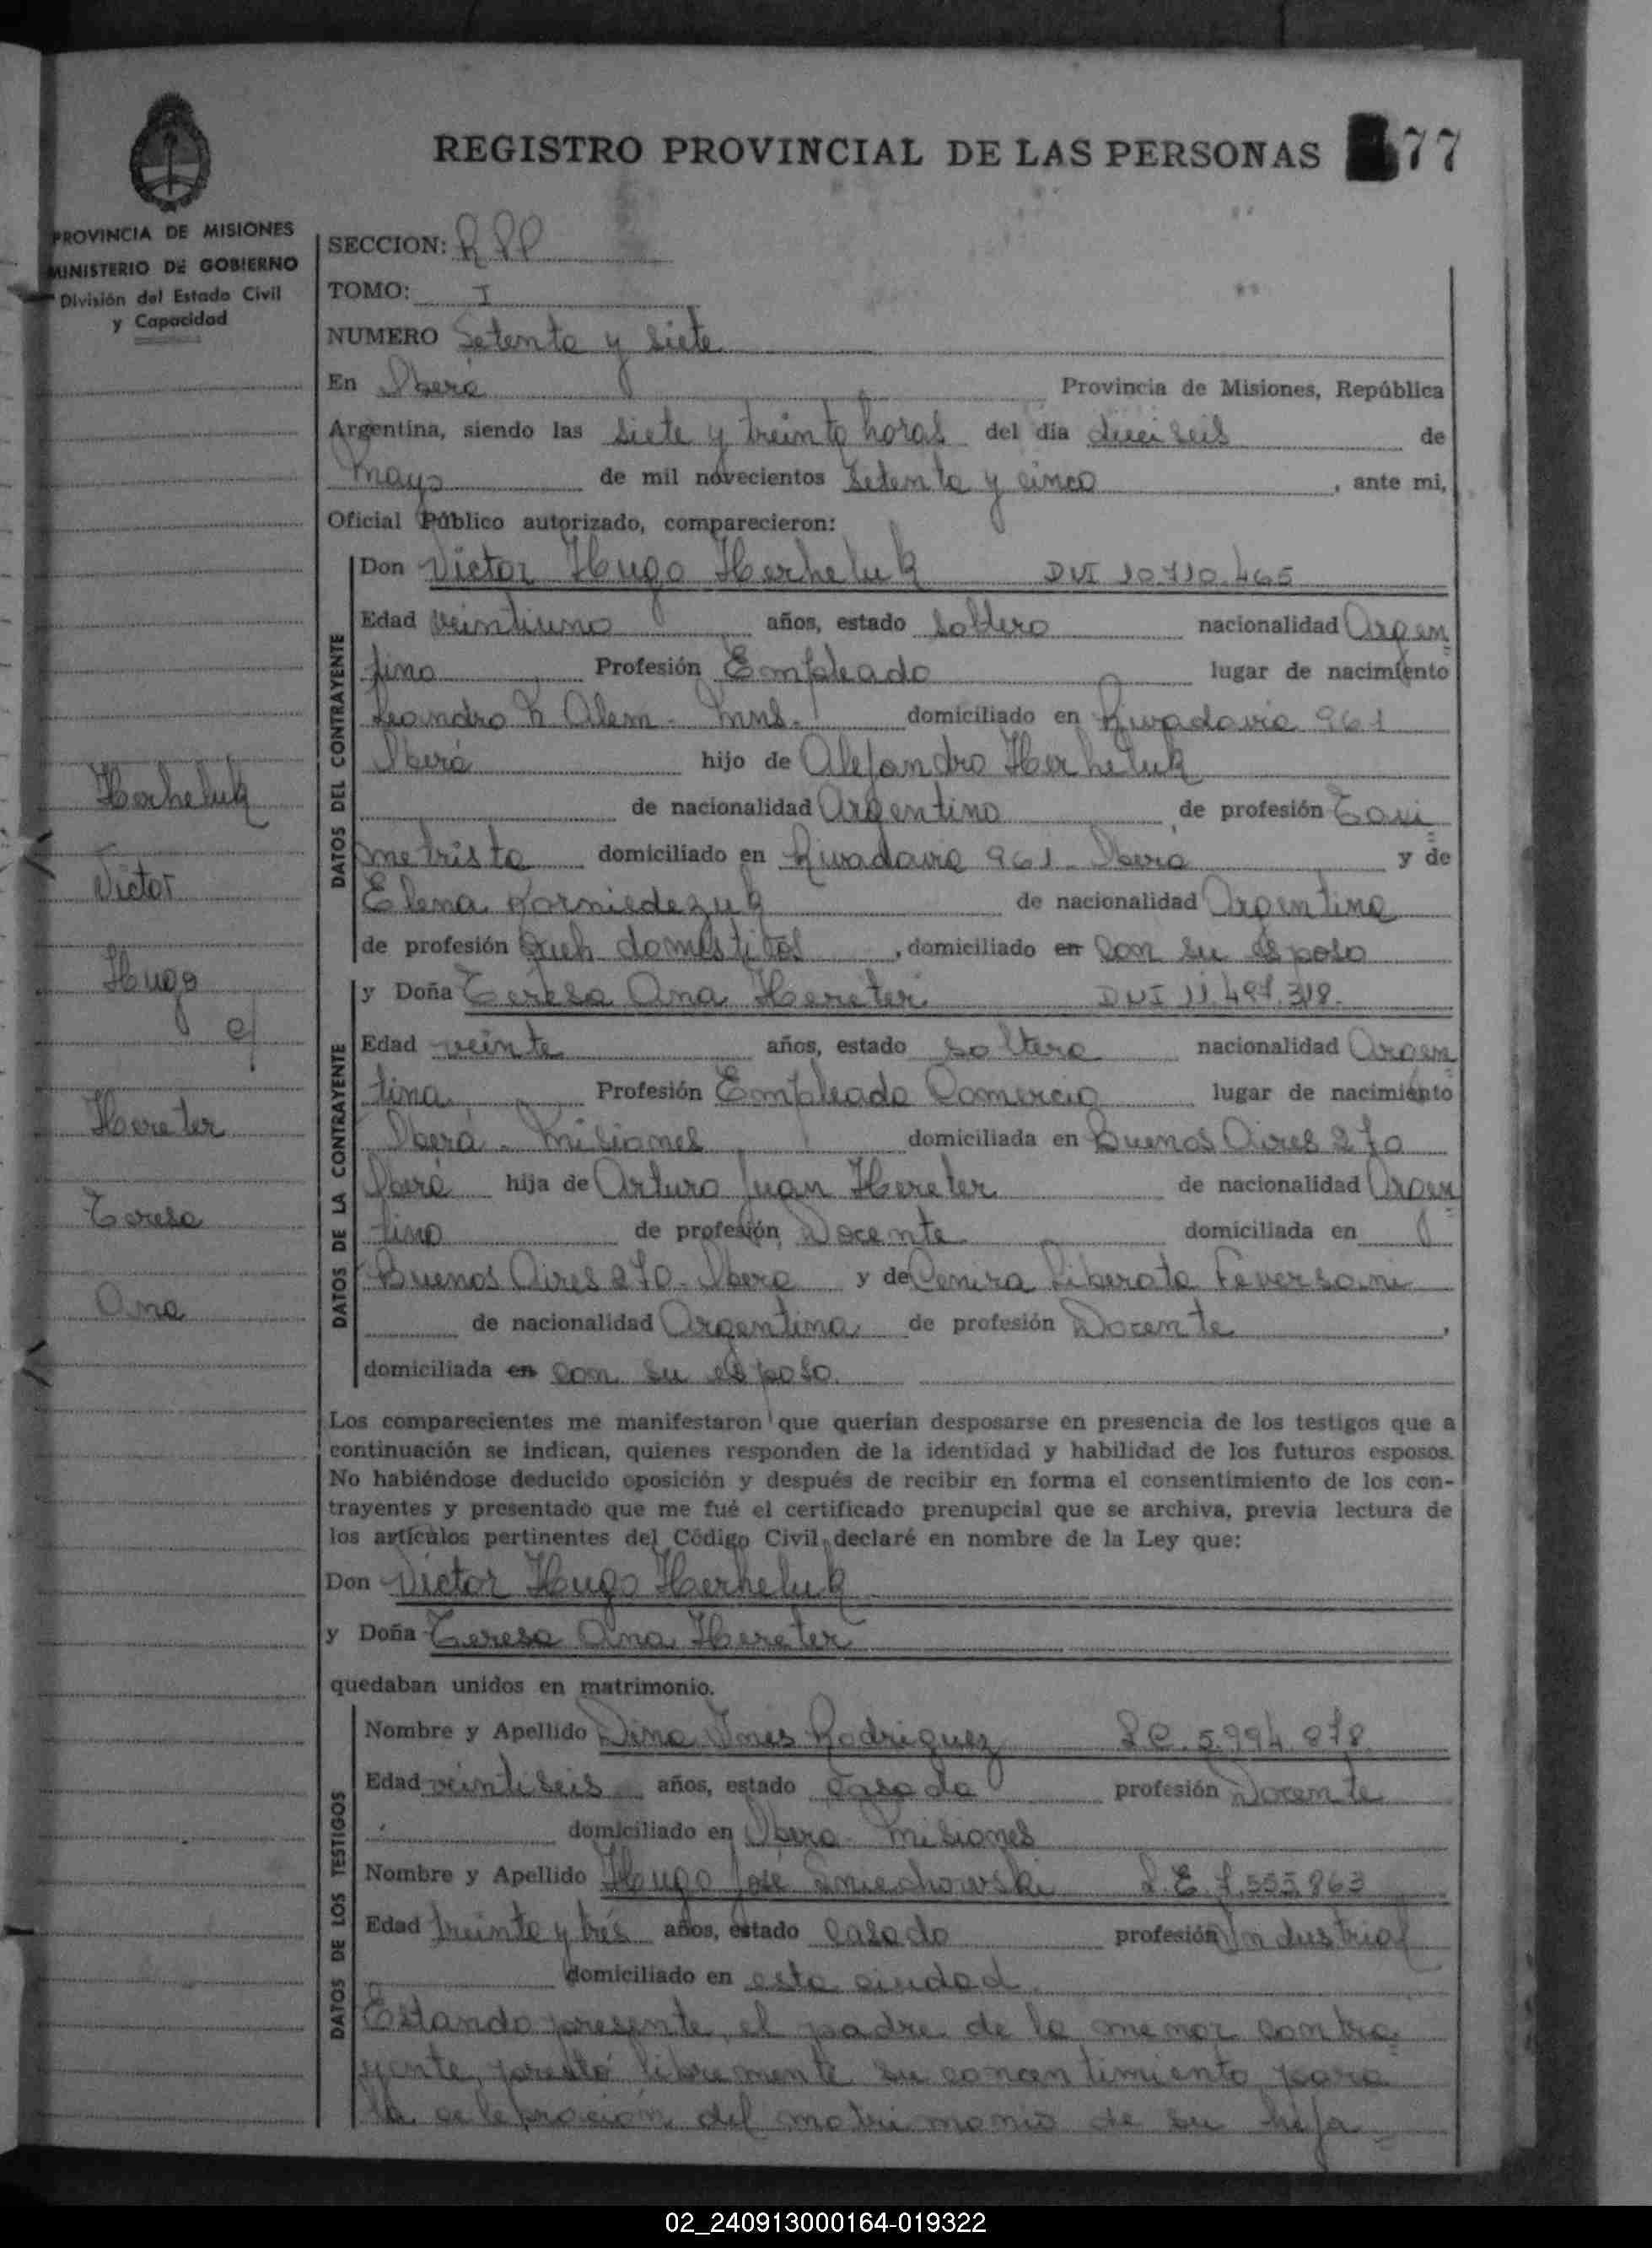 REGISTRO PROVINCIAL DE LAS PERSONAS 77
PROVINCIA DE MISIONES
MINISTERIO DE GOBIERNO
División del Estado Civil
y Capacidad
SECCION: RPP
TOMO: I
NUMERO Setenta y siete
En Oberá Provincia de Misiones, República
Argentina, siendo las siete y treinta horas del día dieciseis de
mayo de mil novecientos setenta y cinco, ante mi,
Oficial Público autorizado, comparecieron:
DATOS DEL CONTRAYENTE
Don Victor Hugo Herheluk DNI 10.710.465
Edad veintiuno años, estado soltero nacionalidad Argen
tino Profesión Empleado lugar de nacimiento
Leandro N Alem - Mns. domiciliado en Rivadavia 961
Oberá hijo de Alejandro Herheluk
de nacionalidad Argentino de profesión
metrista domiciliado en Rivadavia 961 - Oberá y de
Elena de nacionalidad Argentina
de profesión Queh domésticos, domiciliado en con su esposo
DATOS DE LA CONTRAYENTE
y Doña Teresa Ana Hereter DNI 11.497.318.
Edad veinte años, estado soltera nacionalidad Argen
tina Profesión Empleada Comercio lugar de nacimiento
Oberá - Misiones domiciliada en Buenos Aires 270
Oberá hija de Arturo Juan Hereter de nacionalidad Argen
tino de profesión Docente domiciliada en
Buenos Aires 270 - Oberá y de Cenira Liberata Feversani
de nacionalidad Argentina de profesión Docente,
domiciliada en con su esposo.
Los comparecientes me manifestaron que querían desposarse en presencia de los testigos que a
continuación se indican, quienes responden de la identidad y habilidad de los futuros esposos.
No habiéndose deducido oposición y después de recibir en forma el consentimiento de los con-
trayentes y presentado que me fué el certificado prenupcial que se archiva, previa lectura de
los artículos pertinentes del Código Civil, declaré en nombre de la Ley que:
Don Victor Hugo Herheluk
y Doña Teresa Ana Hereter
quedaban unidos en matrimonio.
DATOS DE LOS TESTIGOS
Nombre y Apellido Dina Ines Rodriguez L.C. 5.994.878
Edad veintiseis años, estado casada profesión Docente
domiciliado en Oberá - Misiones
Nombre y Apellido Hugo José Sniechowski L.E. 7.555.863
Edad treinta y tres años, estado casado profesión Industrial
domiciliado en esta ciudad.
Estando presente, el padre de la menor contra
yente, prestó libremente su concentimiento para
la celebración del matrimonio de su hija
Herheluk
Victor
Hugo
c/
Hereter
Teresa
Ana
02_240913000164-019322